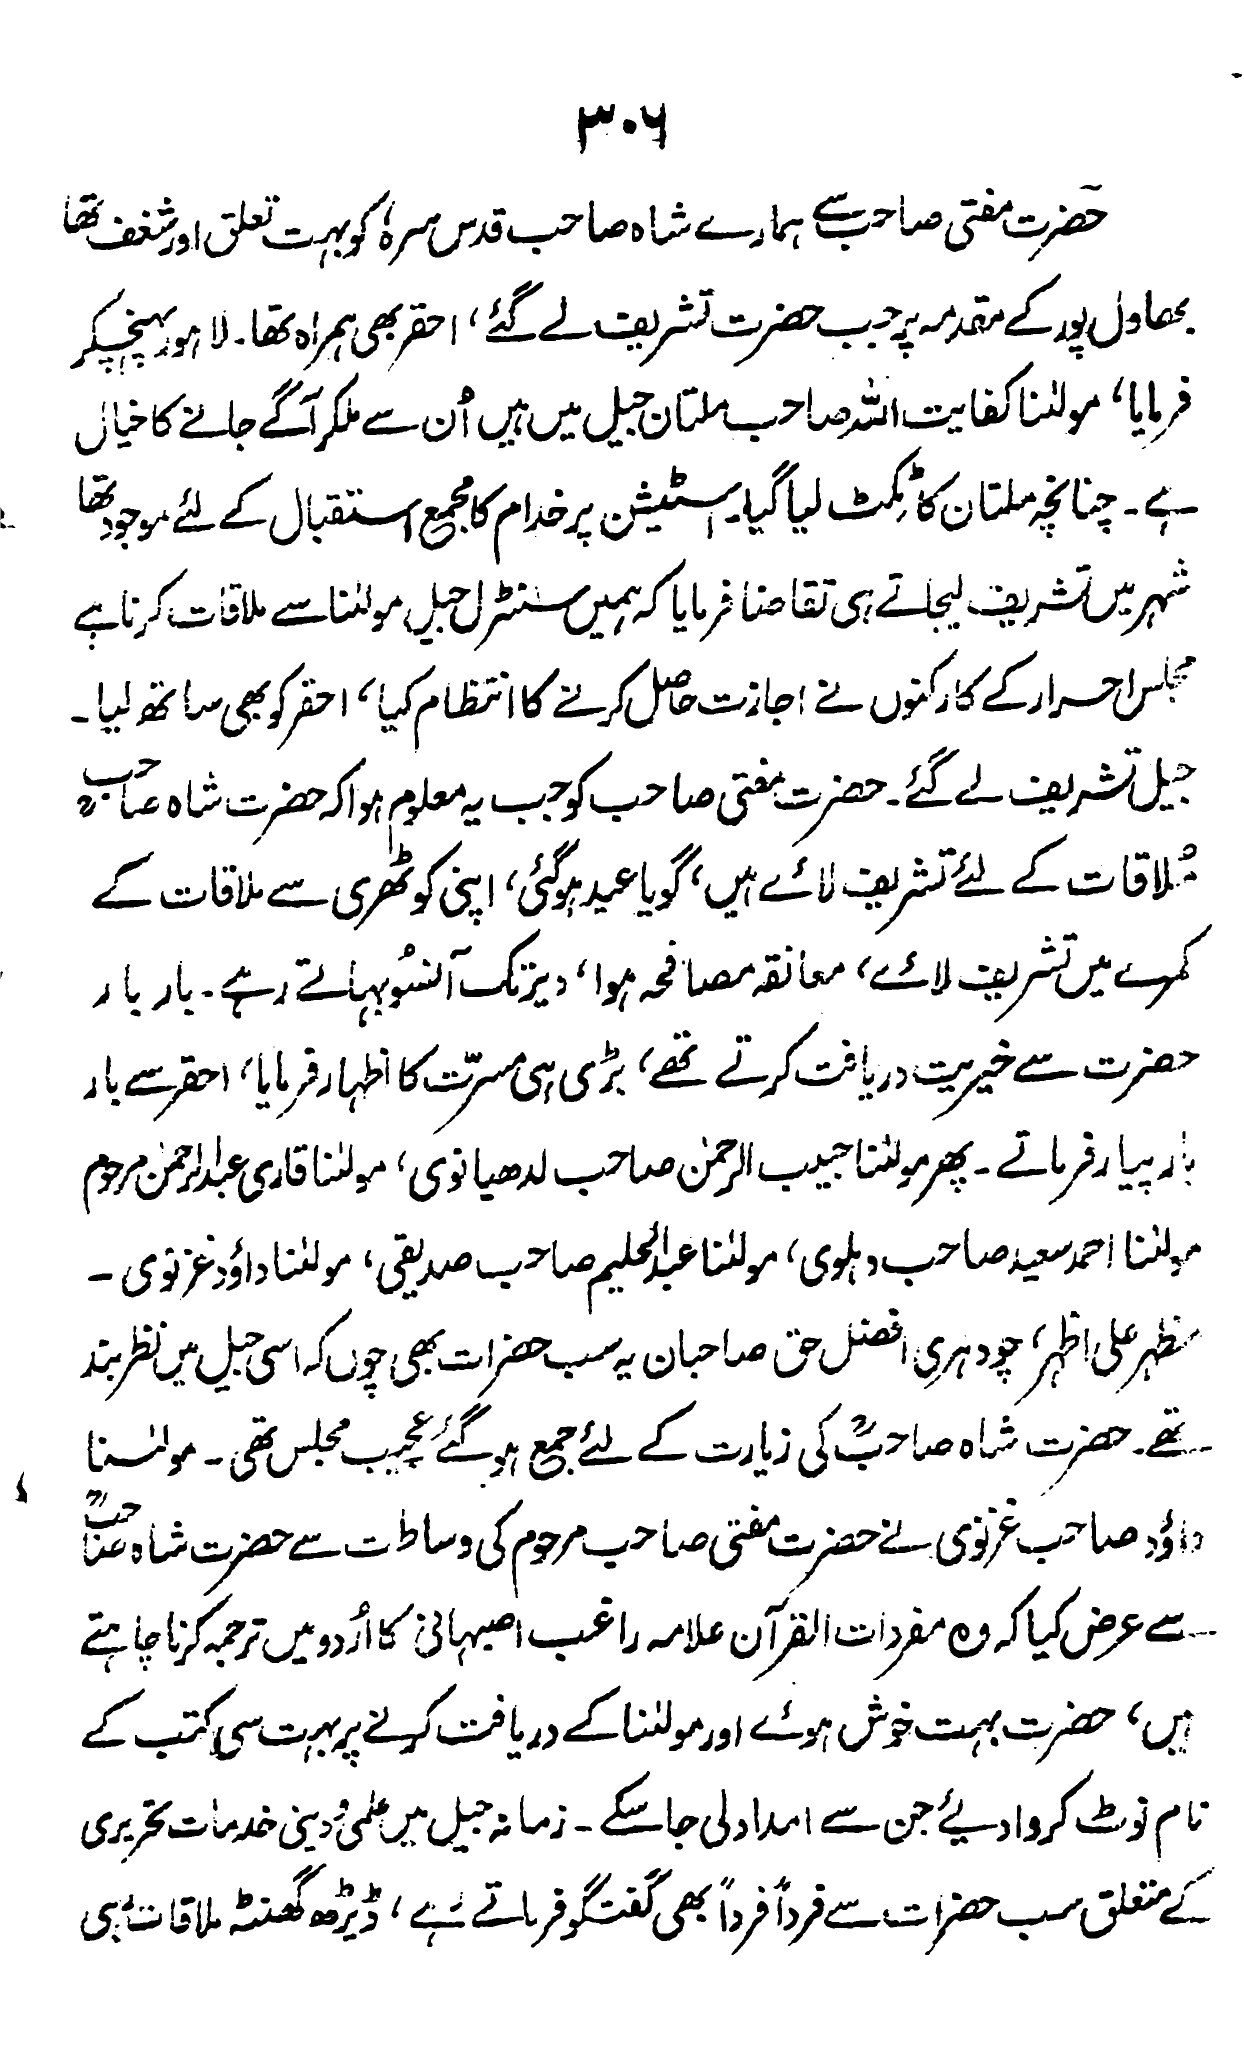 ۳۰۶
حضرت مفتی صاحب سے ہمارے شاہ صاحب قدس سرہٗ کو بہت تعلق اور شغف تھا
بھاول پور کے مقدمہ پر جب حضرت تشریف لے گئے، احقر بھی ہمراہ تھا۔ لاہور پہنچکر
فرمایا، مولٰنا کفایت اللہ صاحب ملتان جیل میں ہیں اُن سے ملکر آگے جانے کا خیال
ہے۔ چنانچہ ملتان کا ٹکٹ لیا گیا۔ اسٹیشن پر خدام کا مجمع استقبال کے لئے موجود تھا
شہر میں تشریف لیجاتے ہی تقاضا فرمایا کہ ہمیں سنٹرل جیل مولٰنا سے ملاقات کرنا ہے
مجلس احرار کے کارکنوں نے اجازت حاصل کرنے کا انتظام کیا، احقر کو بھی ساتھ لیا۔
جیل تشریف لے گئے۔ حضرت مفتی صاحب کو جب یہ معلوم ہوا کہ حضرت شاہ صاحبؒ
ملاقات کے لئے تشریف لائے ہیں، گویا عید ہوگئی، اپنی کوٹھری سے ملاقات کے
کمرے میں تشریف لائے، معانقہ مصافحہ ہوا، دیر تک آنسُو بہاتے رہے۔ بار بار
حضرت سے خیریت دریافت کرتے تھے، بڑی ہی مسرّت کا اظہار فرمایا، احقر سے بار
بار پیار فرماتے۔ پھر مولٰنا حبیب الرحمٰن صاحب لدھیانوی، مولٰنا قاری عبدالرحمٰن مرحوم
مولٰنا احمد سعید صاحب دہلوی، مولٰنا عبدالحلیم صاحب صدیقی، مولٰنا داؤد غزنوی۔
مظہر علی اظہر، چودہری افضل حق صاحبان یہ سب حضرات بھی چوں کہ اسی جیل میں نظر بند
تھے۔ حضرت شاہ صاحبؒ کی زیارت کے لئے جمع ہوگئے عجیب مجلس تھی۔ مولٰنا
داؤد صاحب غزنوی نے حضرت مفتی صاحب مرحوم کی وساطت سے حضرت شاہ صاحبؒ
سے عرض کیا کہ وہ مفردات القرآن علامہ راغب اصبہانی کا اُردو میں ترجمہ کرنا چاہتے
ہیں، حضرت بہت خوش ہوئے اور مولٰنا کے دریافت کرنے پر بہت سی کتب کے
نام نوٹ کروا دیئے جن سے امداد لی جا سکے۔ زمانہ جیل میں علمی و دینی خدمات تحریری
کے متعلق سب حضرات سے فرداً فرداً بھی گفتگو فرماتے رہے، ڈیڑھ گھنٹہ ملاقات رہی